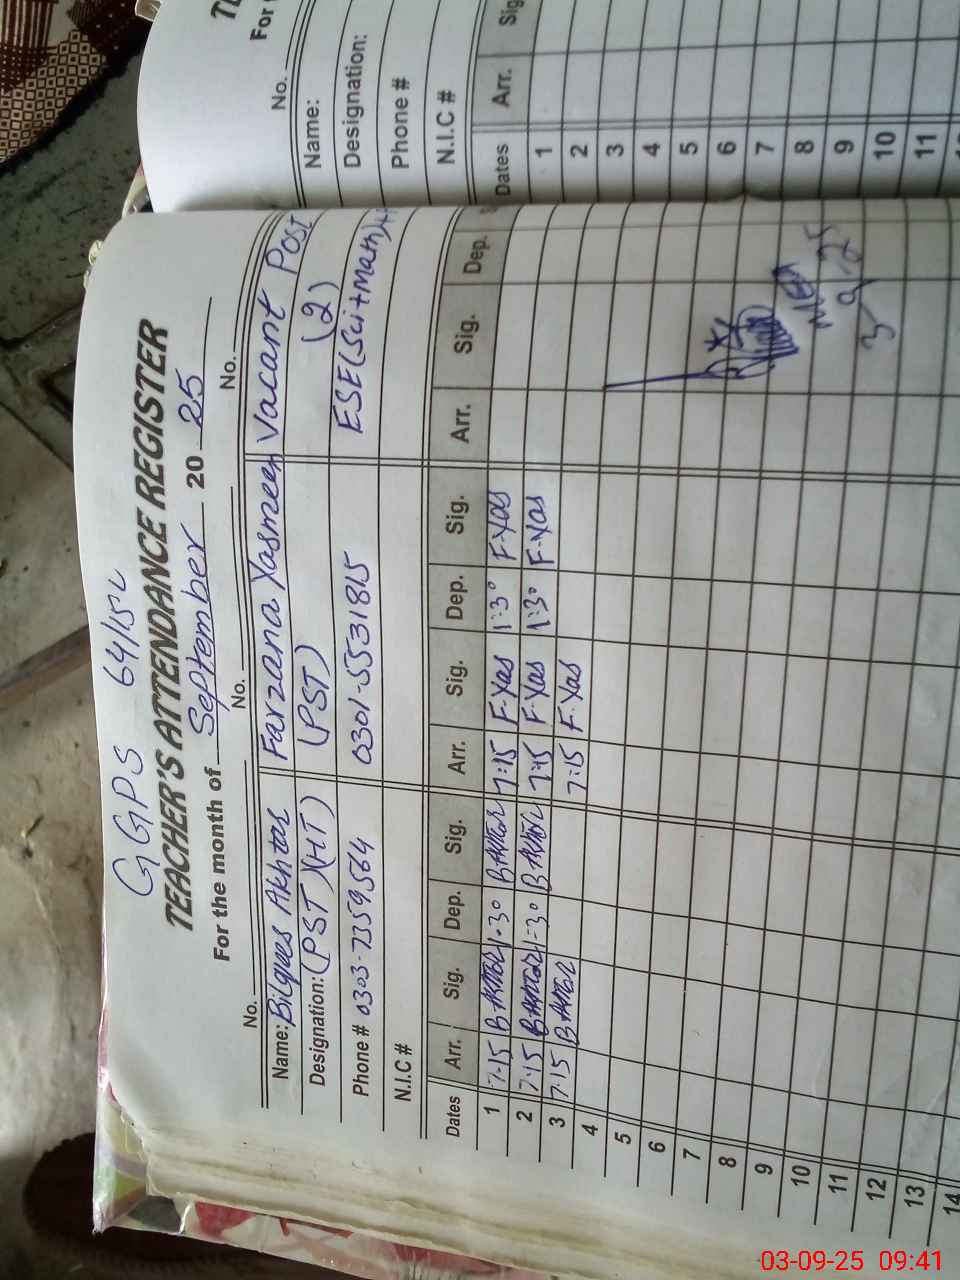 GGPS 64/15-L
TEACHER'S ATTENDANCE REGISTER
For the month of September 20 25
No. No. No.
Name: Bilques Akhtar Farzana Yasmeen Vacant Post
Designation: (PST)(HT) (PST) (2)
Phone # 0303-7359564 0301-5531815 ESE(Sci+Math)
N.I.C #
Dates Arr. Sig. Dep. Sig. Arr. Sig. Dep. Sig. Arr. Sig. Dep.
1 7-15 B.AKHTAR 1-30 B.AKHTAR 7:15 F.Yas 1:30 F.Yas
2 7:15 B.AKHTAR 1-30 B.AKHTAR 7:15 F.Yas 1:30 F.Yas
3 7:15 B.AKHTAR 7:15 F.Yas
4
5
6
7
8
9
10
11
12
13
14
MEA
3-9-25
For
No.
Name:
Designation:
Phone #
N.I.C #
Dates Arr. Sig.
1
2
3
4
5
6
7
8
9
10
11
03-09-25 09:41